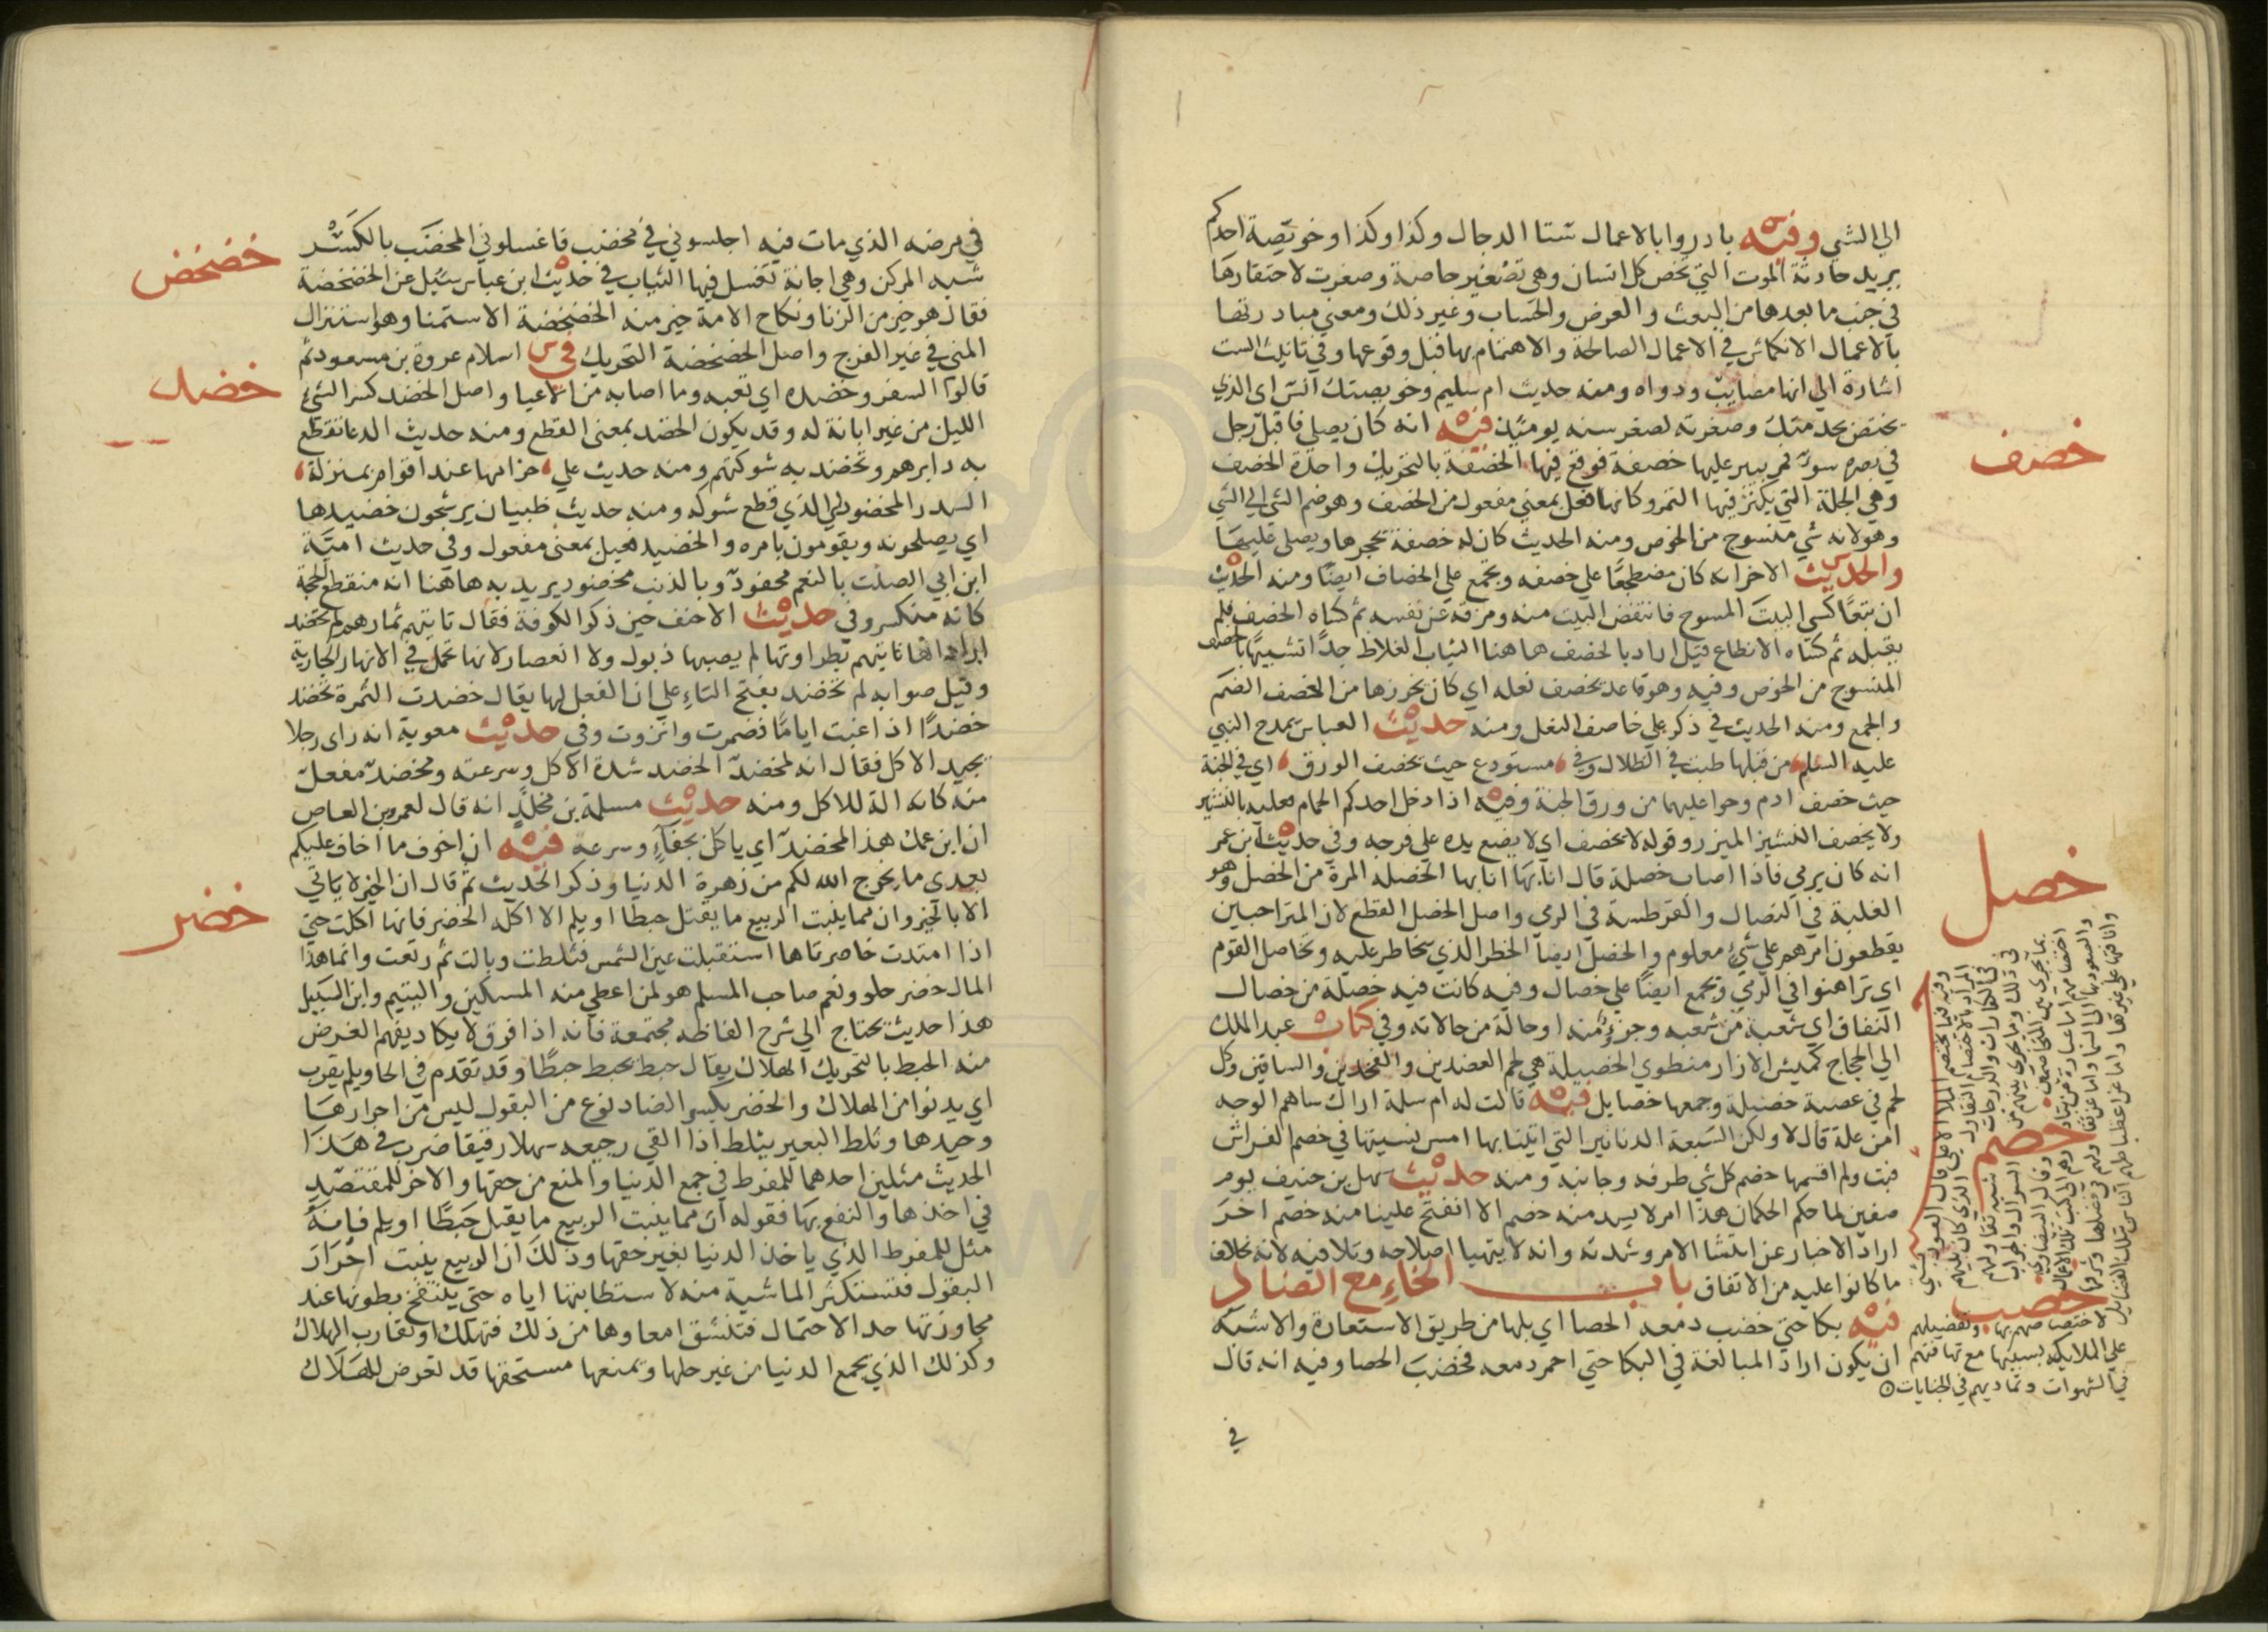 الى الشي وفيه بادروا بالاعمال ستا الدجال وكذا وكذا وخويصة احدكم
يريد حادثة الموت التي تخص كل انسان وهي تصغير خاصة وصغرت لاحتقارها
في جنب ما بعدها من البعث والعرض والحساب وغير ذلك ومعنى مبادرتها
بالاعمال الانكماش في الاعمال الصالحة والاهتمام بها قبل وقوعها وفي تانيث الست
اشارة الى انها مصايب ودواه ومنه حديث ام سليم وخويصتك انس اى الذي
يختص بخدمتك وصغرته لصغر سنه يومئذ فيه انه كان يصلي فاقبل رجل
في بصره سوء فمر ببير عليها خصفة فوقع فيها الخصفة بالتحريك واحدة الخصف
وهي الجلة التي يكنز فيها التمر وكانها فعل بمعنى مفعول من الخصف وهو ضم الشي الى الشي
وهو لانه شي منسوج من الخوص ومنه الحديث كان له خصفة يحجرها ويصلي عليها
والحديث الاخر انه كان مضطجعا على خصفه ويجمع على الخصاف ايضا ومنه الحديث
ان تبعا كسى البيت المسوح فانتفض البيت منه ومزقه عن نفسه ثم كساه الخصف فلم
يقبله ثم كساه الانطاع قيل اراد بالخصف هاهنا الثياب الغلاظ جدا تشبيها بالخصف
المنسوج من الخوص وفيه وهو قاعد يخصف نعله اي كان يخرزها من الخصف الضم
والجمع ومنه الحديث في ذكر علي خاصف النعل ومنه حديث العباس يمدح النبي
عليه السلم من قبلها طبت في الظلال وفي مستودع حيث يخصف الورق اي في الجنة
حيث خصف ادم وحوا عليهما من ورق الجنة وفيه اذا دخل احدكم الحمام فعليه بالنشير
ولا يخصف النشير الميزر وقوله لا يخصف اي لا يضع يده على فرجه وفي حديث ابن عمر
انه كان يرمي فاذا اصاب خصلة قال انا بها انا بها الخصله المرة من الخصل وهو
الغلبة في النضال والقرطسة في الرمي واصل الخصل القطع لان المتراهنين
يقطعون امرهم على شيء معلوم والخصل ايضا الخطر الذي يخاطر عليه وتخاصل القوم
اى تراهنوا في الرمي ويجمع ايضا على خصال وفيه كانت فيه خصلة من خصال
النفاق اي شعبة من شعبه وجزء منه او حالة من حالاته وفي كتاب عبد الملك
الى الحجاج كميش الازار منطوي الخصيلة هي لحم العضدين والفخذين والساقين وكل
لحم في عصبة خصيلة وجمعها خصايل فيه قالت له ام سلمة اراك ساهم الوجه
امن علة قال لا ولكن السبعة الدنانير التي اتينا بها امس نسيتها في خصم الفراش
فبت ولم اقسمها خصم كل شي طرفه وجانبه ومنه حديث سهل بن حنيف يوم
صفين لما حكم الحكمان هذا امر لا يسد منه خصم الا انفتح علينا منه خصم اخر
اراد الاخبار عن انتشا الامر وشدته وانه لا يتهيا اصلاحه وتلافيه لانه بخلاف
ما كانوا عليه من الاتفاق باب الخاء مع الضاد
فيه بكا حتى خضب دمعه الحصا اي بلها من طريق الاستعارة والاشبه
ان يكون اراد المبالغة في البكا حتى احمر دمعه فخضب الحصا وفيه انه قال
في
خصف
خصل
خصم
خضب
وفيه فيما يختصم الملا الاعلى قال
لاختصاصهم بها وتفضيلهم
على الملايكة بسببها مع تهافتهم
في الشهوات وتماديهم في الجنايات
في مرضه الذي مات فيه اجلسوني في مخضب فاغسلوني المخضب بالكسر
شبه المركن وهي اجانة تغسل فيها الثياب في حديث ابن عباس سئيل عن الخضخضة
فقال هو خير من الزنا ونكاح الامة خير منه الخضخضة الاستمنا وهو استنزال
المني في غير الفرج واصل الخضخضة التحريك في اسلام عروة بن مسعود ثم
قالوا السفر وخضده اي تعبه وما اصابه من الاعيا واصل الخضد كسر الشي
اللين من غير ابانة له وقد يكون الخضد بمعنى القطع ومنه حديث الدعا تقطع
به دابرهم وتخضد به شوكتهم ومنه حديث علي حرامها عند اقوام بمنزلة
السدر المخضود اي الذي قطع شوكه ومنه حديث ظبيان يرشحون خضيدها
اي يصلحونه ويقومون بامره والخضيد فعيل بمعنى مفعول وفي حديث امية
ابن ابي الصلت بالنعم محفود وبالذنب مخضود يريد به هاهنا انه منقطع الحجة
كانه منكسر وفي حديث الاحنف حين ذكر الكوفة فقال تاتيهم ثمارهم لم تخضد
اراد انها تاتيهم بطراوتها لم يصبها ذبول ولا انعصار لانها تحمل في الانهار الجارية
وقيل صوابه لم تخضد بفتح التاء على ان الفعل لها يقال خضدت الثمرة تخضد
خضدا اذا غبت اياما فضمرت وانزوت وفي حديث معوية انه راى رجلا
يجيد الاكل فقال انه لمخضد الخضد شدة الاكل وسرعته ومخضد مفعل
منه كانه الة للاكل ومنه حديث مسلمة بن مخلد انه قال لعمرو بن العاص
ان ابن عمك هذا المخضد اي ياكل بجفاء وسرعة فيه ان اخوف ما اخاف عليكم
بعدي ما يخرج الله لكم من زهرة الدنيا وذكر الحديث ثم قال ان الخير لا ياتي
الا بالخير وان مما ينبت الربيع ما يقتل حبطا او يلم الا اكله الخضر فانها اكلت حتى
اذا امتدت خاصرتاها استقبلت عين الشمس فثلطت وبالت ثم رتعت وانما هذا
المال خضر حلو ونعم صاحب المسلم هو لمن اعطى منه المسكين واليتيم وابن السبيل
هذا حديث يحتاج الى شرح الفاظه مجتمعة فانه اذا فرق لا يكاد يفهم الغرض
منه الحبط بالتحريك الهلاك يقال حبط يحبط حبطا وقد تقدم في الحا ويلم يقرب
اي يدنوا من الهلاك والخضر بكسر الضاد نوع من البقول ليس من احرارها
وجيدها وثلط البعير يثلط اذا القى رجيعه سهلا رقيقا ضرب في هذا
الحديث مثلين احدهما للمفرط في جمع الدنيا والمنع من حقها والاخر للمقتصد
في اخذها والنفع بها فقوله ان مما ينبت الربيع ما يقتل حبطا او يلم فانه
مثل للمفرط الذي ياخذ الدنيا بغير حقها وذلك ان الربيع ينبت احرار
البقول فتستكثر الماشية منه لاستطابتها اياه حتى ينتفخ بطونها عند
مجاوزتها حد الاحتمال فتنشق امعاوها من ذلك فتهلك او تقارب الهلاك
وكذلك الذي يجمع الدنيا من غير حلها ويمنعها مستحقها قد تعرض للهلاك
خضخض
خضد
خضر